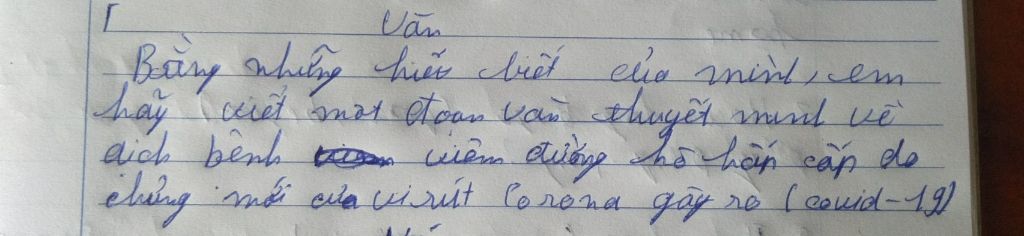 Văn
Bằng những hiểu biết của mình, em
hãy viết một đoạn văn thuyết minh về
dich bệnh viêm đường hô hấp cấp do
chủng mới của vi rút Corona gây ra (covid-19)